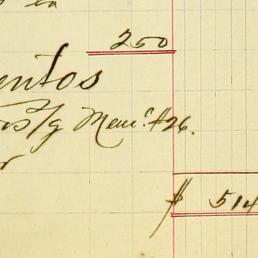 la
250
entos
s/g Mem: #26.
r
$ 514